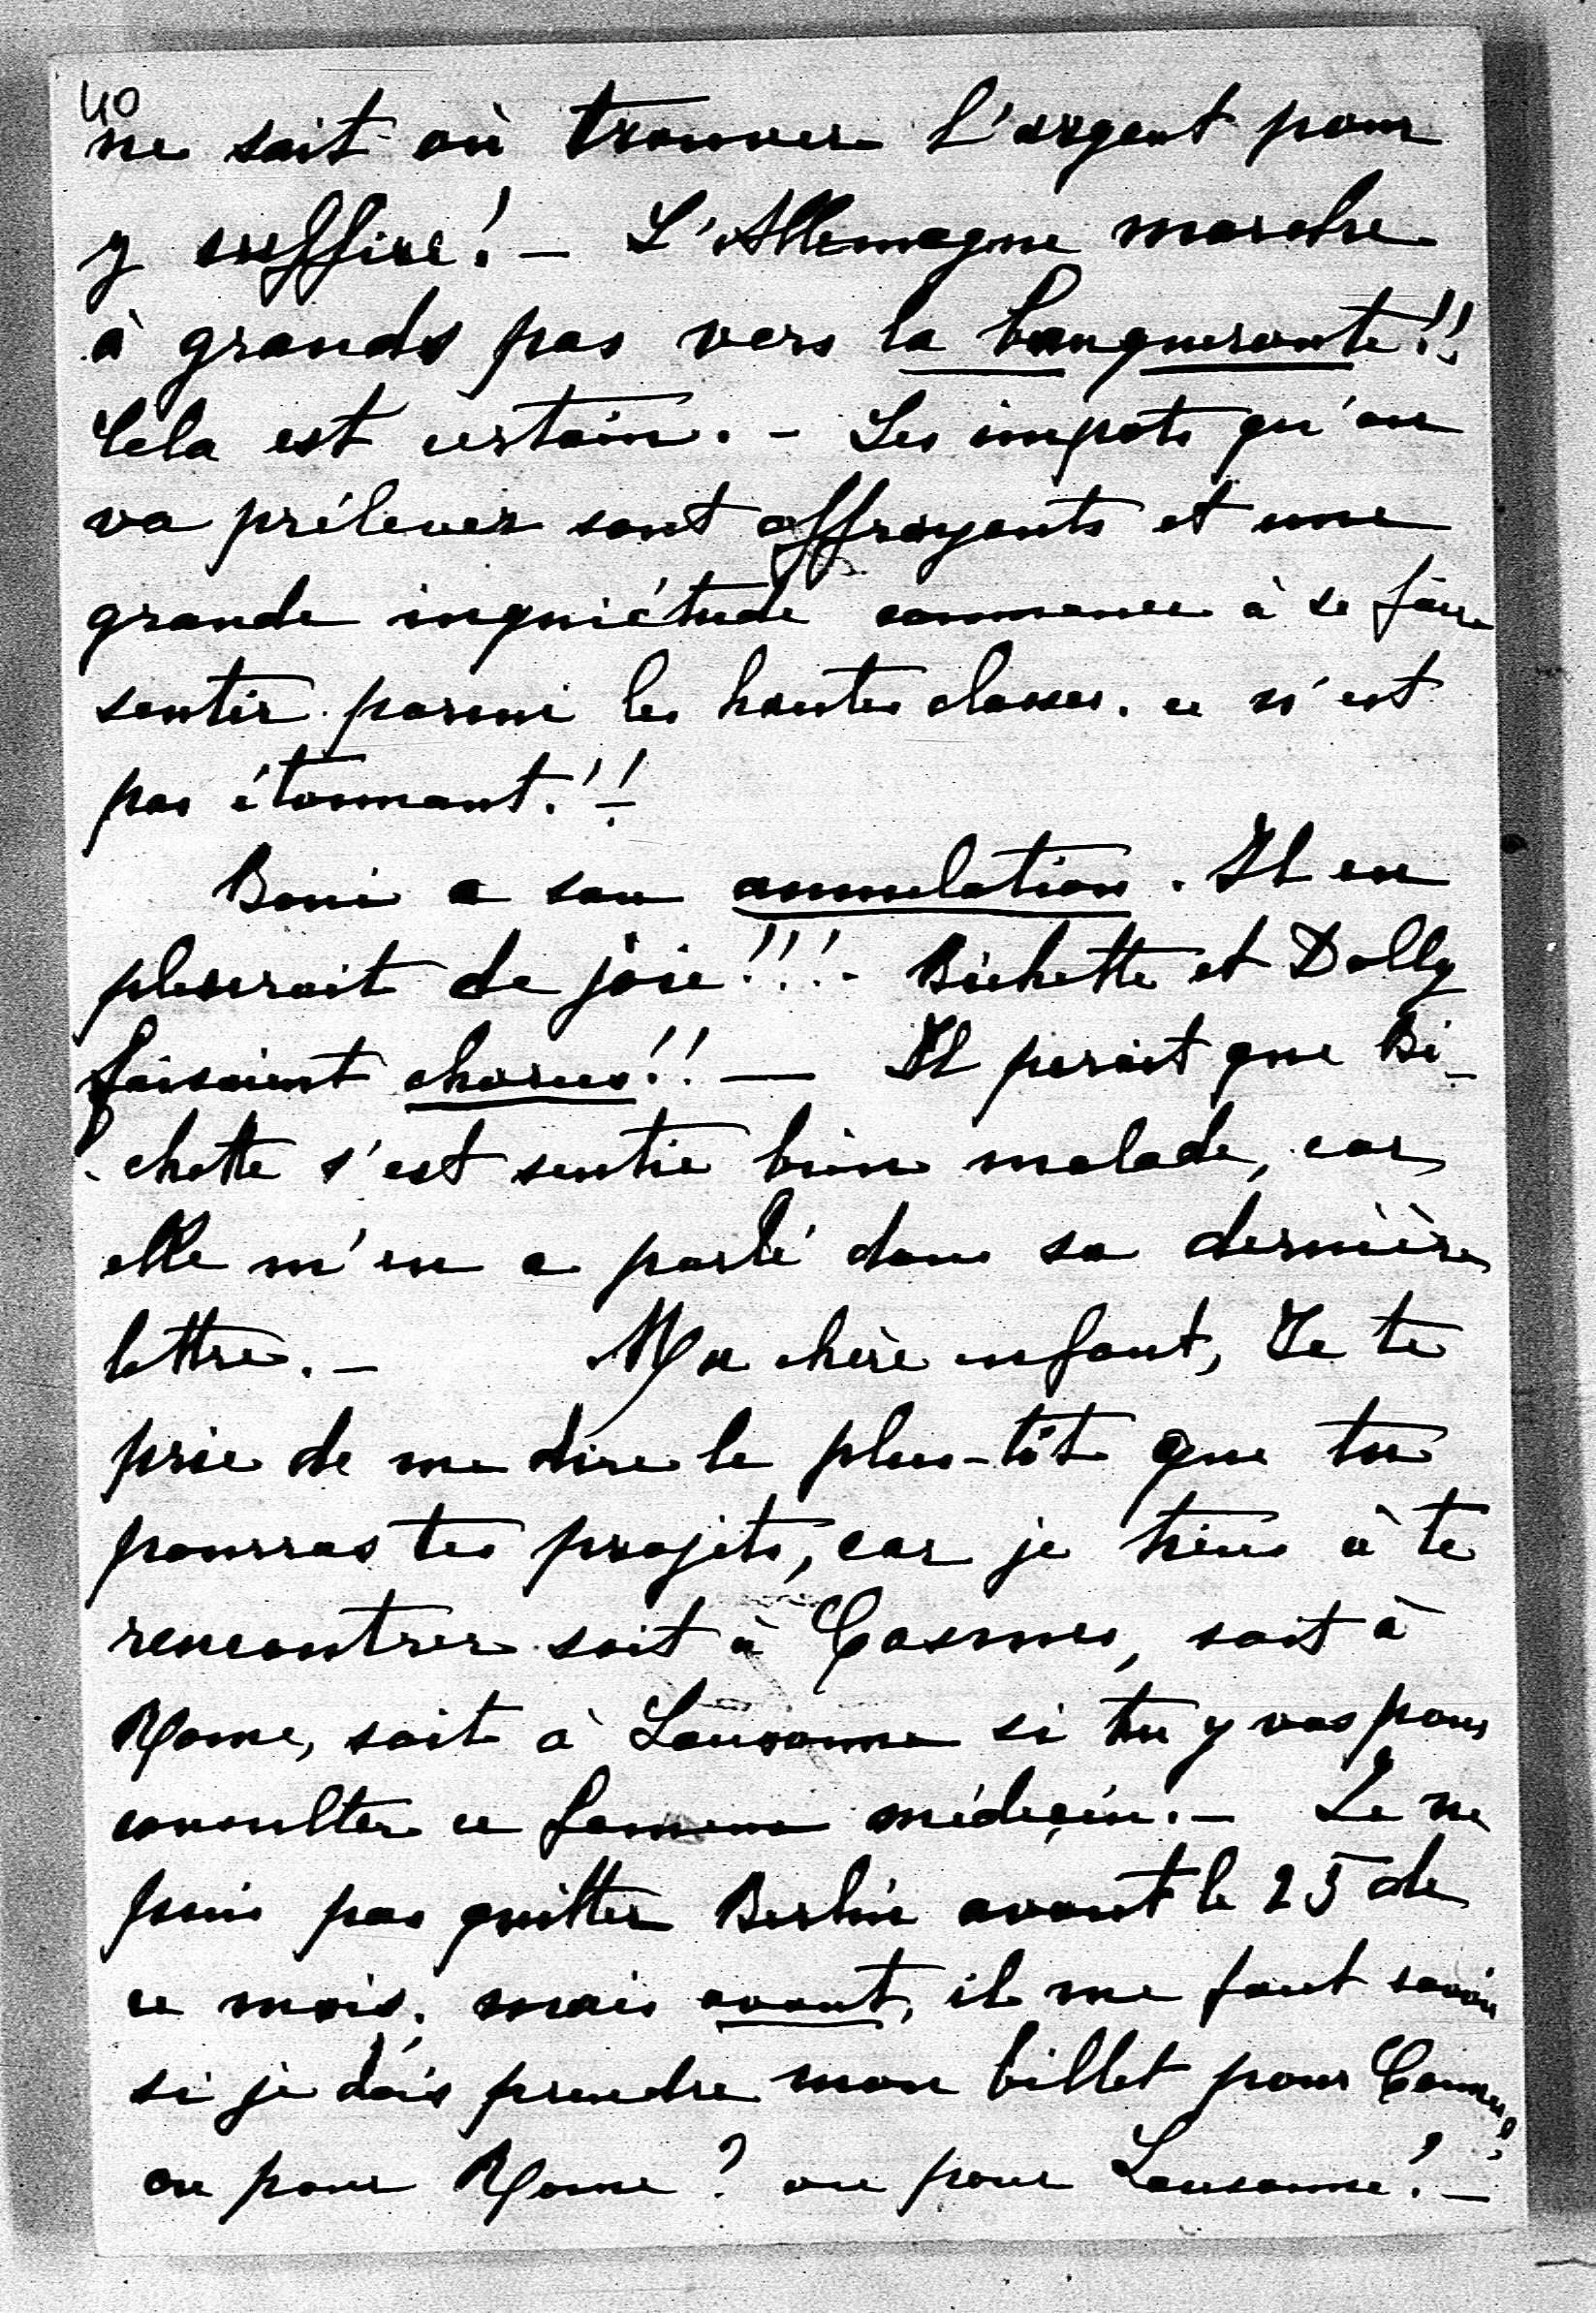 40
ne sait où trouver l'argent pour
y suffire! – L'Allemagne marche
à grands pas vers la banqueroute!!
Cela est certain. – Les impots qu'on
va prélever sont effrayants et une
grande inquiétude commence à se faire
sentir parmi les hautes classes. ce n'est
pas étonnant!!
Boni a son annulation. Il en
pleurait de joie!!! – Bichette et Dolly
faisaient chorus!! — Il perait que Bi-
chette s'est sentie bien malade, car
elle m'en a parlé dans sa dernière
lettre. – Ma chère enfant, Je te
prie de me dire le plus-tôt que tu
pourras tes projets, car je tiens à te
rencontrer soit à Cannes, soit à
Rome, soit à Lausanne si tu y vas pour
consulter ce fameux médecin. – Je ne
puis pas quitter Berlin avant le 25 de
ce mois. mais avant, il me faut savoir
si je dois prendre mon billet pour Cannes?
ou pour Rome? ou pour Lausanne? –